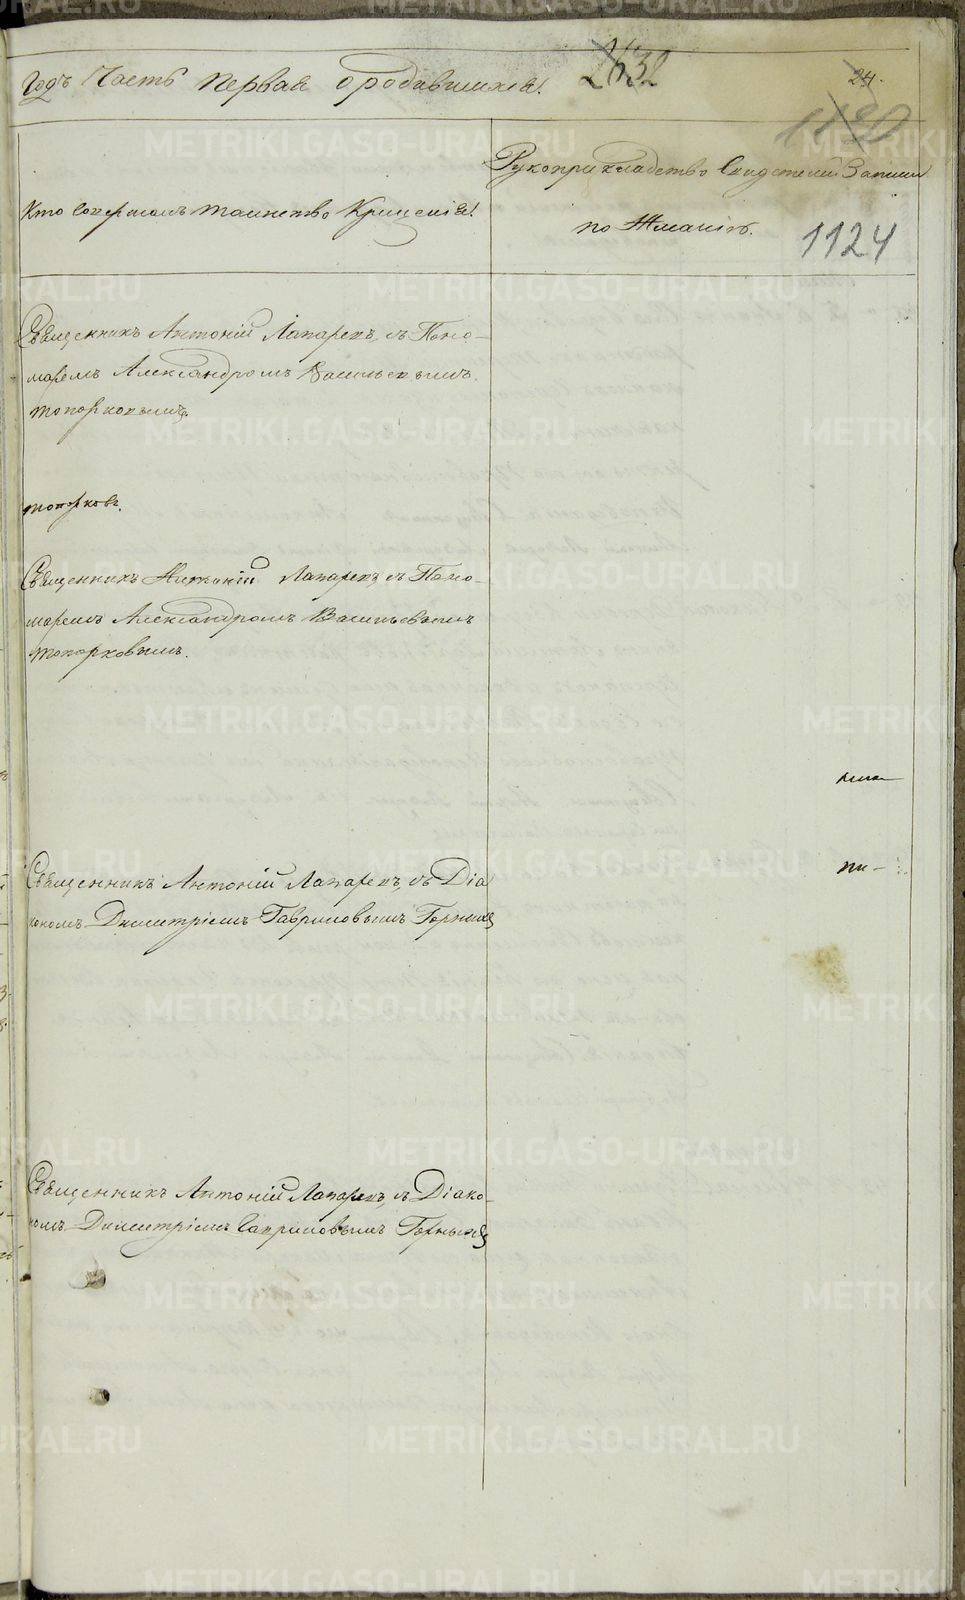 Годъ Часть первая о родившихся.
2632
24.
1120
Кто совершалъ таинство Крещенія.
Рукоприкладство Свидетелей Записи
по Желанію.
1124
Священникъ Антоній Лапаревъ, съ Поно-
маремъ Александромъ Васильевымъ
Топорковымъ.
Топорковъ.
Священникъ Антоній Лапаревъ, съ Поно-
маремъ Александромъ Васильевымъ
Топорковымъ.
Священникъ Антоній Лапаревъ, съ Діа
кономъ Димитріемъ Гавриловымъ Горныхъ
Священникъ Антоній Лапаревъ, съ Діако-
номъ Димитріемъ Гавриловымъ Горныхъ
METRIKI.GASO-URAL.RU